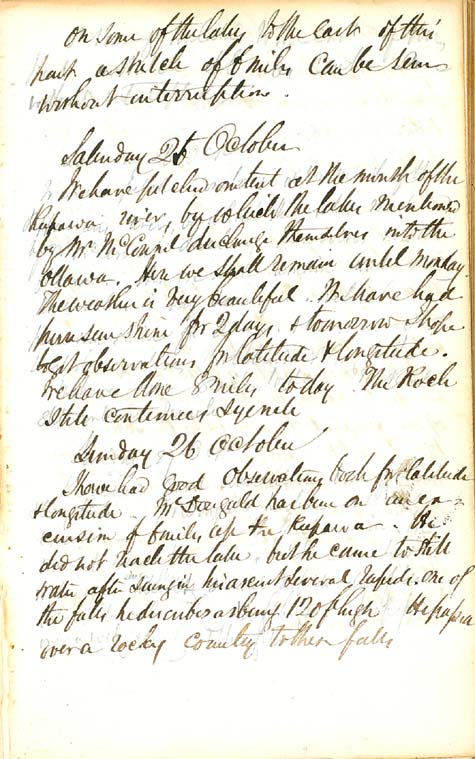 on some of the lakes to the east of this
part a stretch of 6 miles can be seen
without interruption.
Saturday 25 October
We have pitched our tent at the mouth of the
Kupawa river, by which the lakes mentioned
by Mr McConnel discharge themselves into the
Ottawa. Here we shall remain until Monday
The weather is very beautiful. We have had
sun shine for 2 days, & tomorrow I hope
to get observations for latitude & longitude.
We have done 8 miles today The Rock
still continues Syenite
Sunday 26 October
I have had good observations both for latitude
& longitude. McDougald has been on an ex-
cursion of 6 miles up the Kupawa. He
did not reach the lake but he came to still
water after seeing in his ascent several rapids. one of
the falls he describes as being 120 f high He passed
over a rocky country to these falls